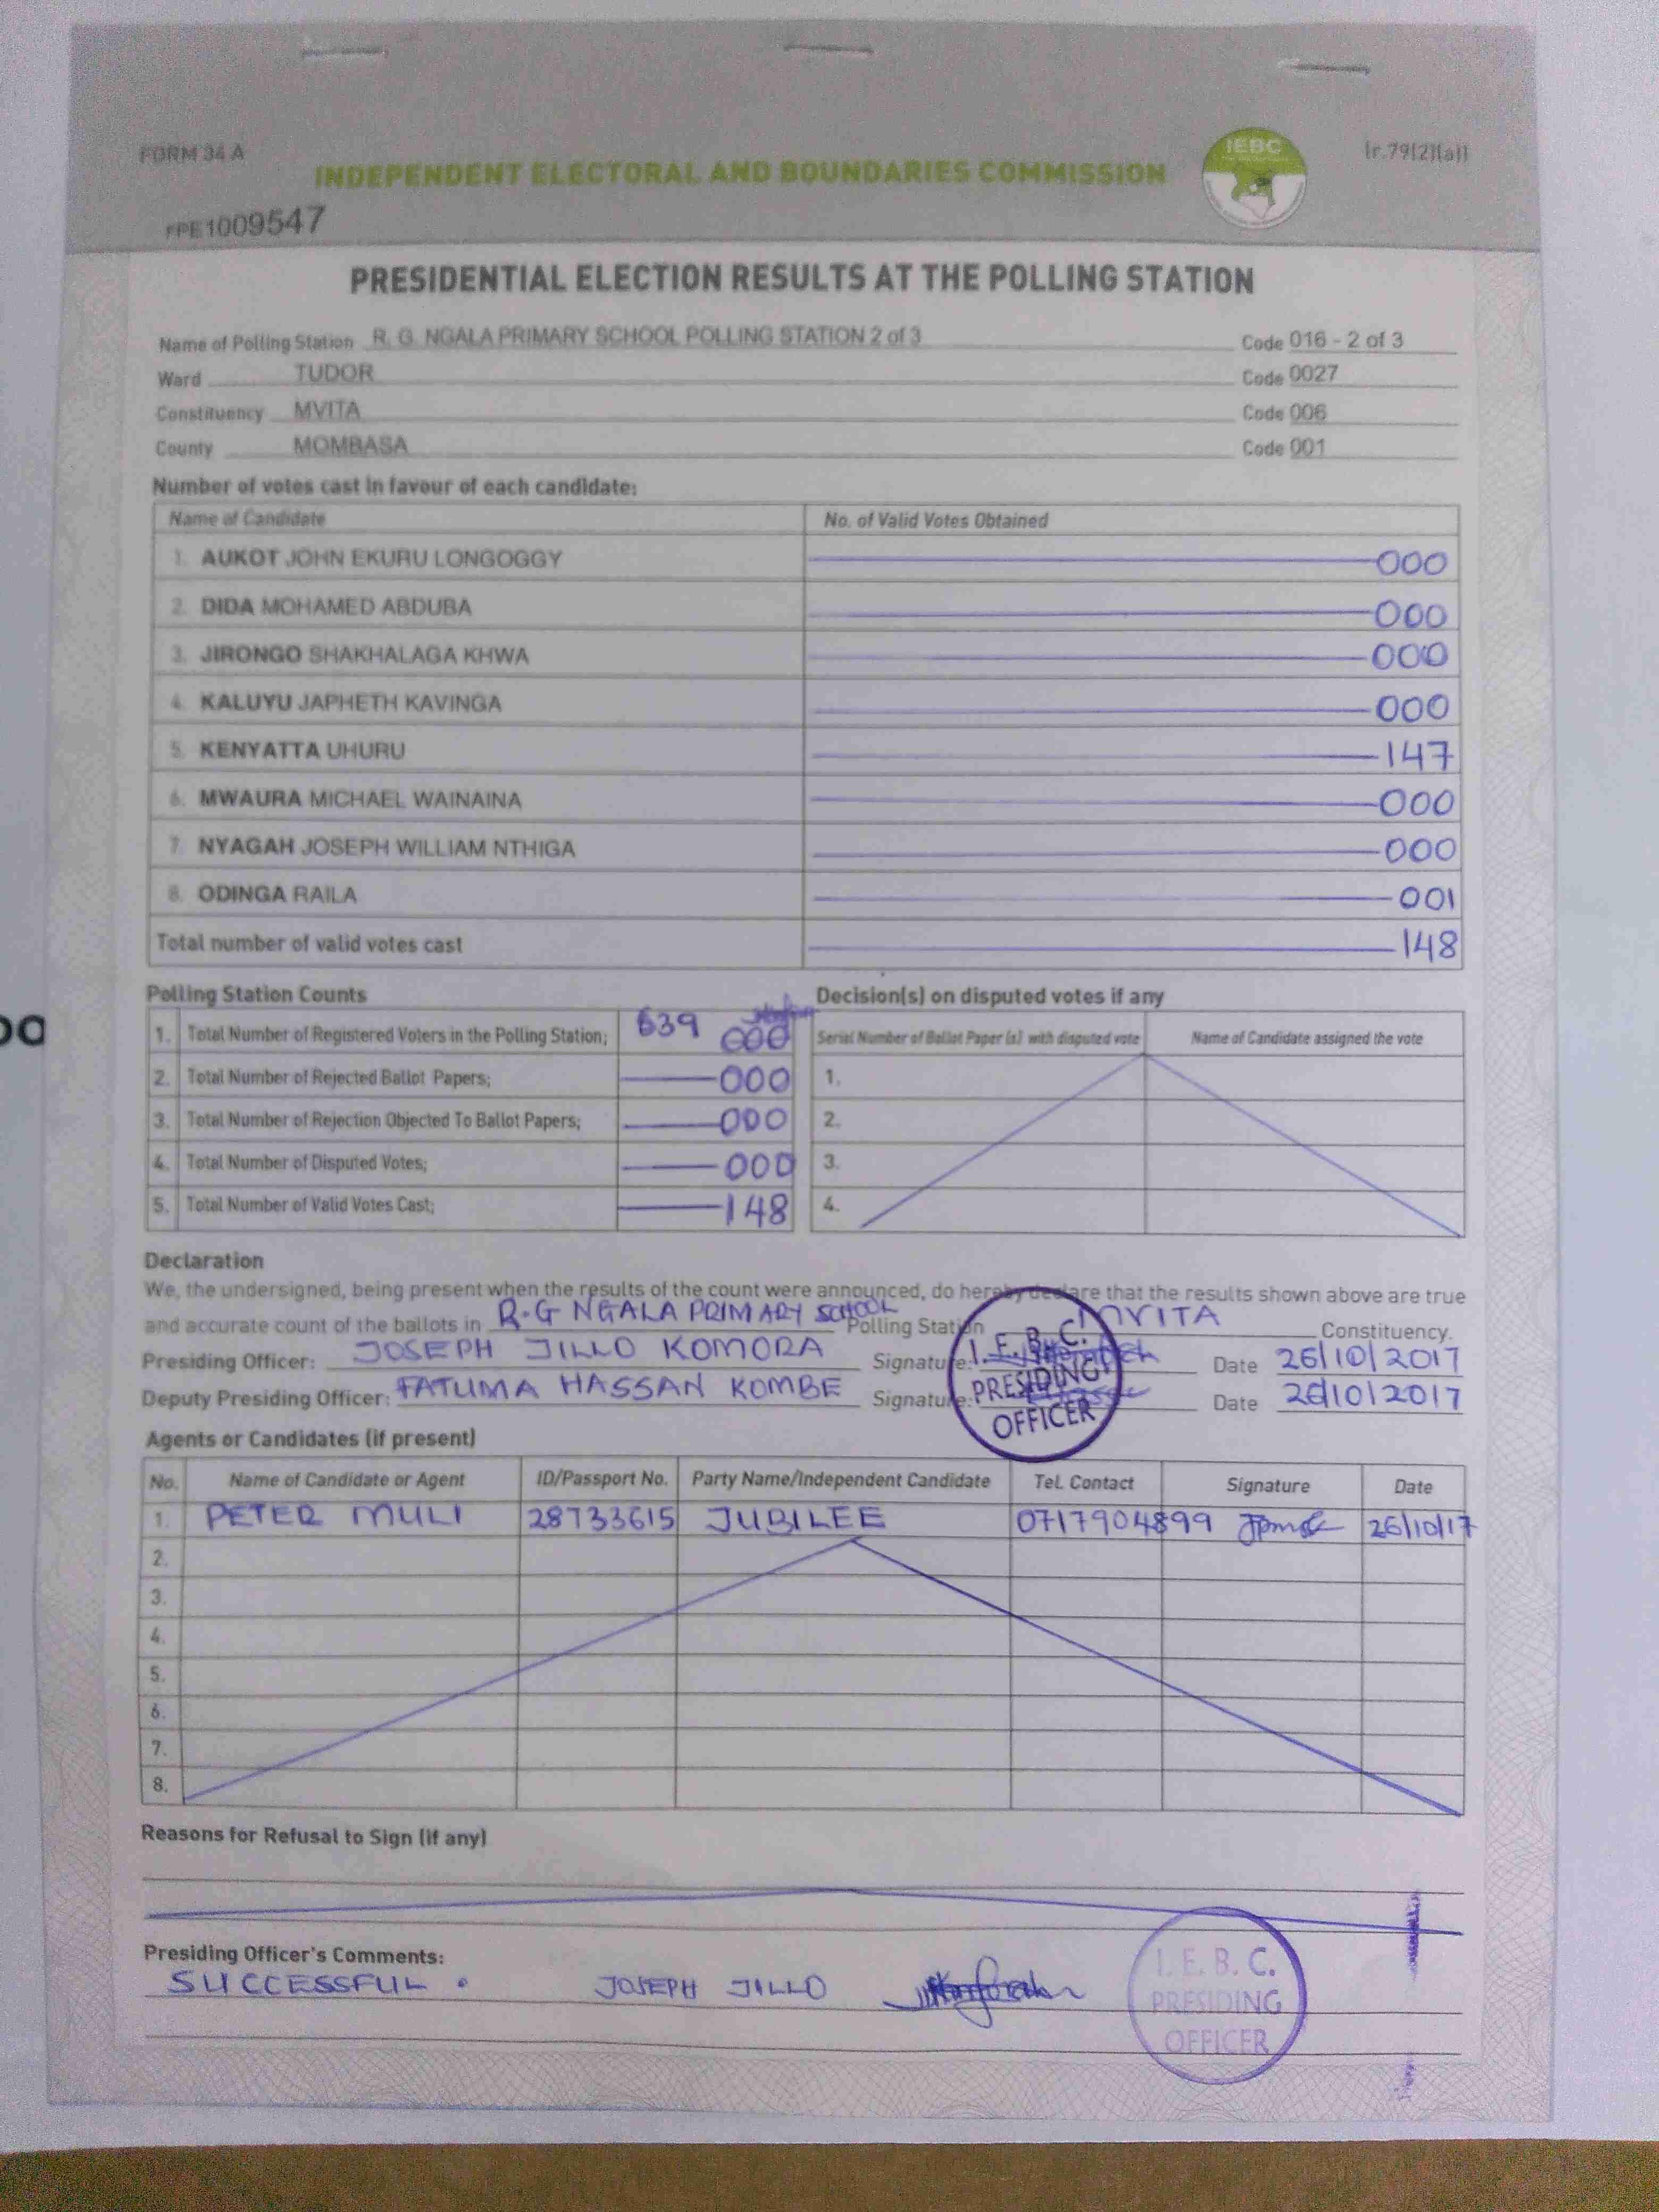 FORM 34 A
IEBC
Ir.79(2)(a)]
INDEPENDENT ELECTORAL AND BOUNDARIES COMMISSION
FPE1009547
PRESIDENTIAL ELECTION RESULTS AT THE POLLING STATION
Name of Polling Station R. G. NGALA PRIMARY SCHOOL POLLING STATION 2 of 3 Code 016 - 2 of 3
Ward TUDOR Code 0027
Constituency MVITA Code 006
County MOMBASA Code 001
Number of votes cast in favour of each candidate:
Name of Candidate No. of Valid Votes Obtained
1. AUKOT JOHN EKURU LONGOGGY 000
2. DIDA MOHAMED ABDUBA 000
3. JIRONGO SHAKHALAGA KHWA 000
4. KALUYU JAPHETH KAVINGA 000
5. KENYATTA UHURU 147
6. MWAURA MICHAEL WAINAINA 000
7. NYAGAH JOSEPH WILLIAM NTHIGA 000
8. ODINGA RAILA 001
Total number of valid votes cast 148
Polling Station Counts Decision(s) on disputed votes if any
1. Total Number of Registered Voters in the Polling Station; 639 000 Serial Number of Ballot Paper (s) with disputed vote Name of Candidate assigned the vote
2. Total Number of Rejected Ballot Papers; 000 1.
3. Total Number of Rejection Objected To Ballot Papers; 000 2.
4. Total Number of Disputed Votes; 000 3.
5. Total Number of Valid Votes Cast; 148 4.
Declaration
We, the undersigned, being present when the results of the count were announced, do hereby declare that the results shown above are true
and accurate count of the ballots in R.G NGALA PRIMARY SCHOOL Polling Station MVITA Constituency.
Presiding Officer: JOSEPH JILLO KOMORA Signature: Date 26/10/2017
Deputy Presiding Officer: FATUMA HASSAN KOMBE Signature: Date 26/10/2017
I. E. B. C.
PRESIDING
OFFICER
Agents or Candidates (if present)
No. Name of Candidate or Agent ID/Passport No. Party Name/Independent Candidate Tel. Contact Signature Date
1. PETER MULI 28733615 JUBILEE 0717904899 26/10/17
2.
3.
4.
5.
6.
7.
8.
Reasons for Refusal to Sign (if any)
Presiding Officer's Comments:
SUCCESSFUL. JOSEPH JILLO
I. E. B. C.
PRESIDING
OFFICER